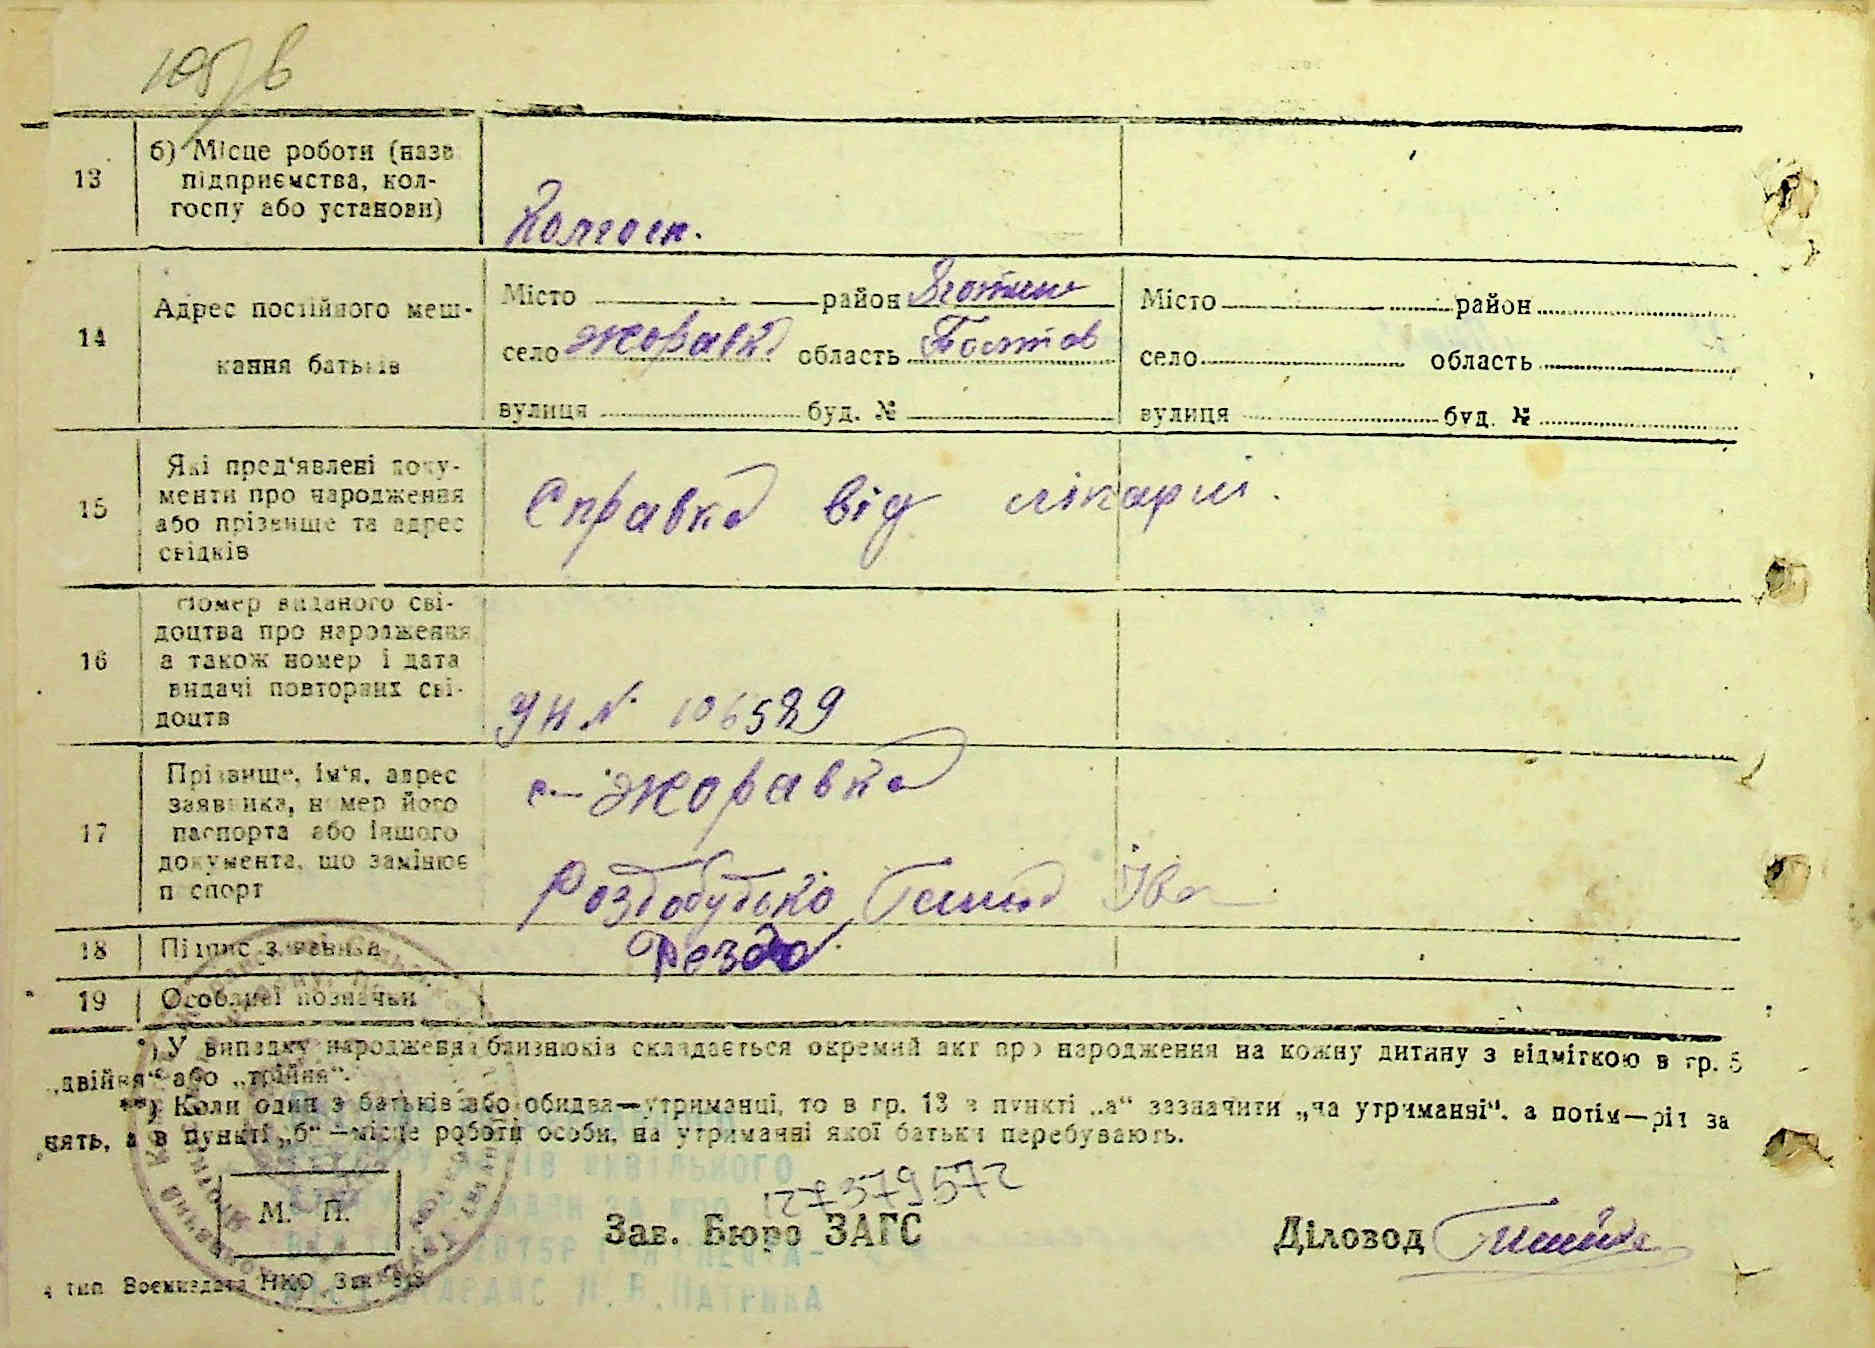 105/в
13
б) Місце роботи (назв
підприємства, кол-
госпу або установи)
Колгосп.
14
Адрес постійного меш-
кання батьків
Місто район Яготинс
село Жоравка область Полтав
вулиця буд. №
Місто район
село область
вулиця буд. №
15
Які пред'явлені доку-
менти про народження
або прізвище та адрес
свідків
Справка від лікарні.
16
Номер виданого сві-
доцтва про народження
а також номер і дата
видачі повторних сві-
доцтв
УН № 106589
17
Прізвище, ім'я, адрес
заявника, номер його
паспорта або іншого
документа, що замінює
п спорт
с. Жоравка
Роздобудько Іва
18
Підпис заявника
Роздо
19
Особливі позначки
*) У випадку народження близнюків складається окремий акт про народження на кожну дитину з відміткою в гр. 5
„двійня“ або „трійня“.
**) Коли один з батьків або обидва—утриманці, то в гр. 13 в пункті „а“ зазначити „на утриманні“, а потім—рід за
нять, а в пункті „б“—місце роботи особи, на утриманні якої батьки перебувають.
М. П.
127379572
Зав. Бюро ЗАГС
Діловод
4 тип Воениздата НКО Зак 513